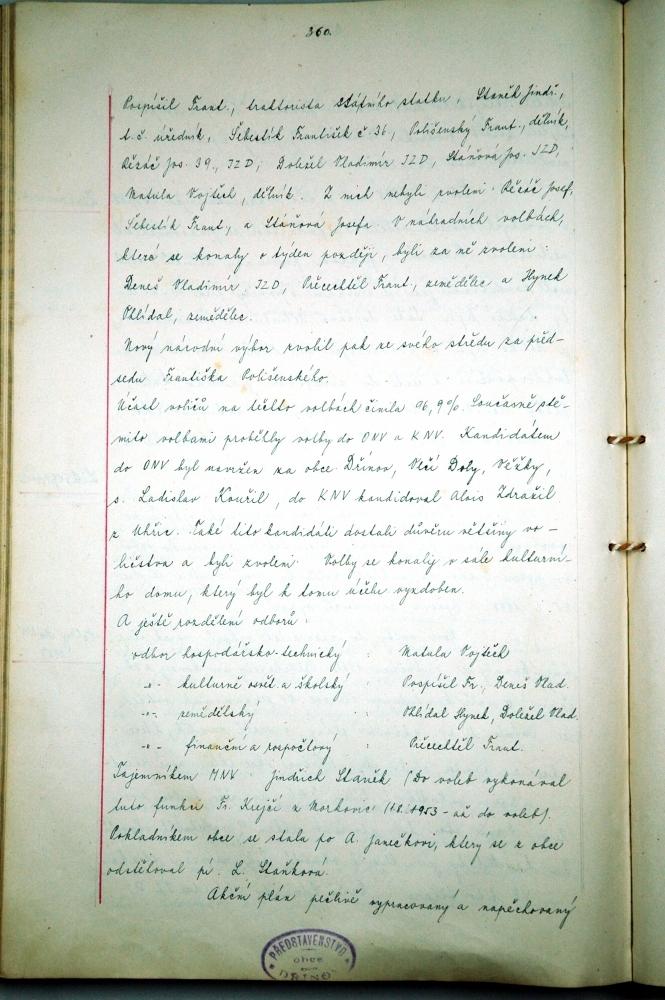 360.
Pospíšil Frant., traktorista státního statku, Staněk Jindř.,
t.č. úředník, Šebestík František č 36, Polišenský Frant., dělník,
Řezáč Jos. 39., JZD, Doležel Vladimír JZD, Stáňová Jos. JZD,
Matula Vojtěch, dělník. Z nich nebyli zvoleni: Řezáč Josef,
Šebestík Frant, a Stáňová Josefa V náhradních volbách,
které se konaly o týden později, byli za ně zvoleni:
Deneš Vladimír, JZD, Přecechtěl Frant, zemědělec a Hynek
Ohlídal, zemědělec.
Nový národní výbor zvolil pak ze svého středu za před-
sedu Františka Polišenského.
Účast voličů na těchto volbách činila 96,9%. Současně stě-
mito volbami proběhly volby do ONV a KNV. Kandidátem
do ONV byl navržen za obce Dřínov, Vlčí Doly, Věžky,
s. Ladislav Kouřil, do KNV kandidoval Alois Zdražil
z Uhřic. Také tito kandidáti dostali důvěru většiny vo-
ličstva a byli zvoleni. Volby se konaly v sále kulturní-
ho domu, který byl k tomu účelu vyzdoben.
A ještě rozdělení odborů:
odbor hospodářsko-technický : Matula Vojtěch
-„- kulturně osvět. a školský Pospíšil Fr., Deneš Vlad.
-„- zemědělský : Ohlídal Hynek, Doležel Vlad.
-„- finanční a rozpočtový : Přecechtěl Frant.
Tajemníkem MNV Jindřich Staněk (Do voleb vykonával
tuto funkci Fr. Krejčí z Morkovic 1953 - až do voleb).
Pokladníkem obce se stala po A. Janečkovi, který se z obce
odstěhoval pí. L. Staňková.
Akční plán pečlivě vypracovaný a napěchovaný
PŘEDSTAVENSTVO
obce
DŘÍNO